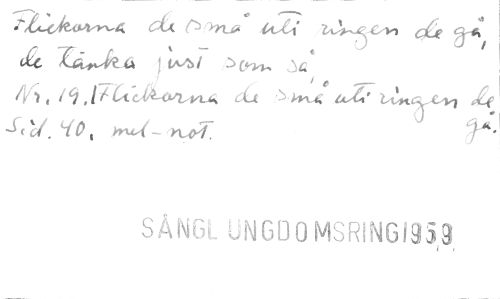 Flickorna de små uti ringen de gå,
de tänka just som så,
Nr. 19. Flickorna de små uti ringen de gå.
Sid. 40. mel-not.
SÅNGL UNGDOMSRING 1959